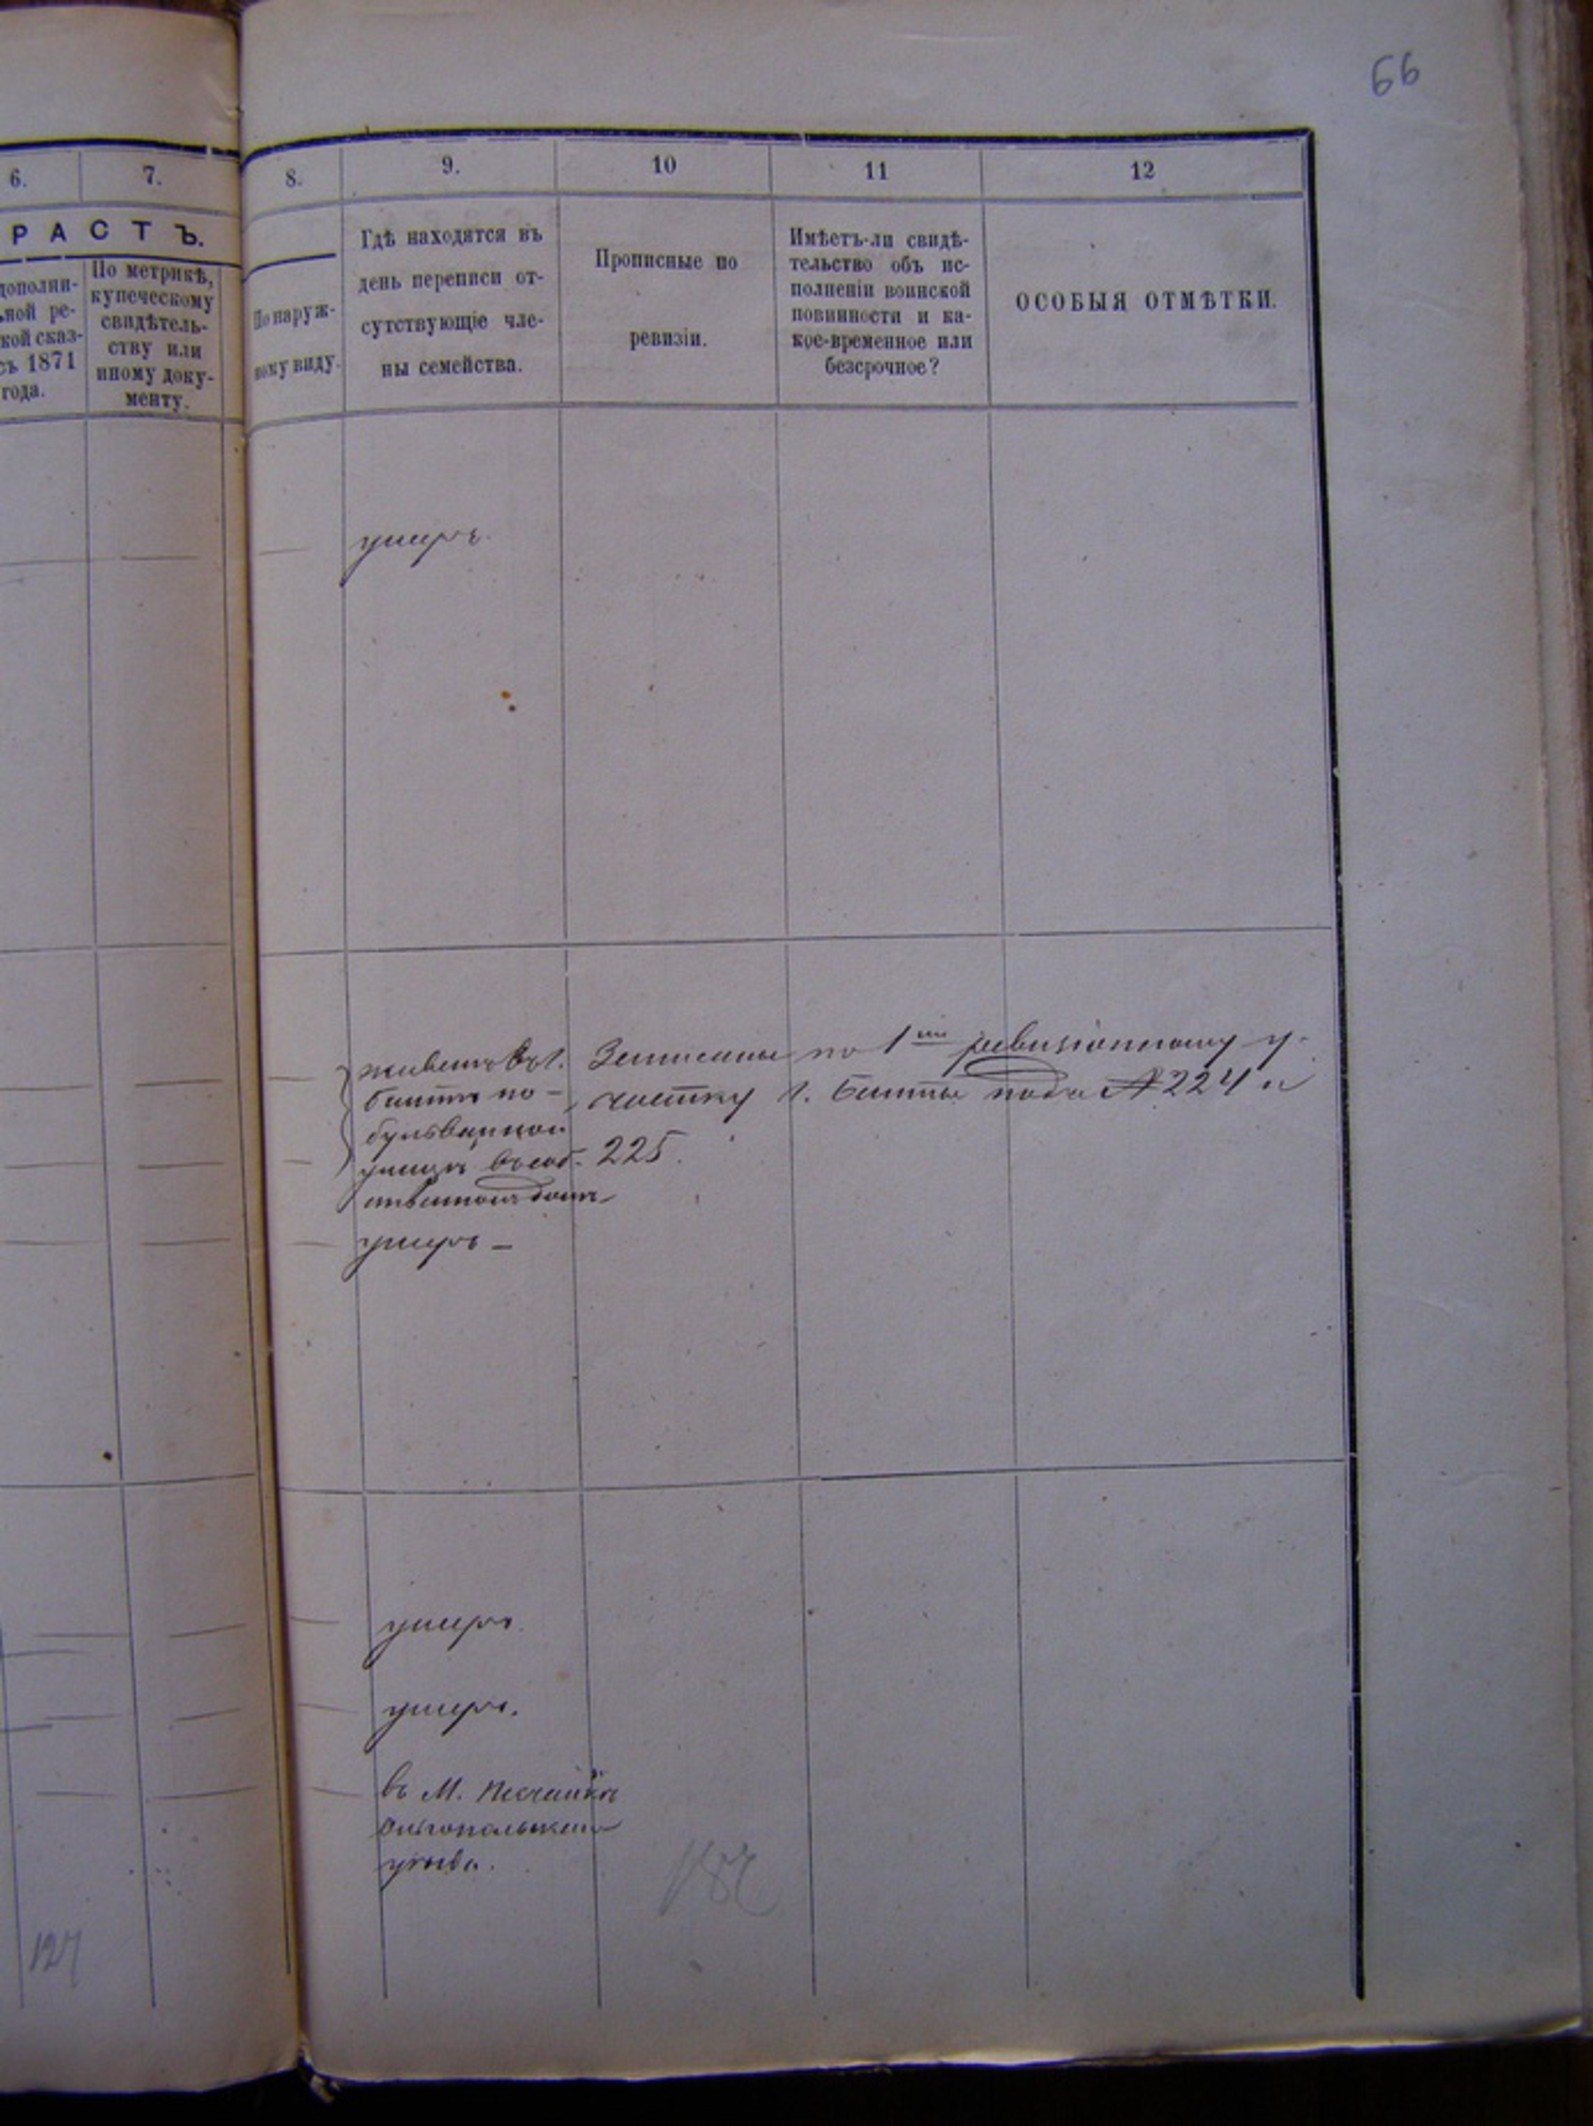 66
6.
7.
8.
9.
10
11
12
РАСТЪ.
дополни-
ьной ре-
кой сказ-
съ 1871
года.
По метрикѣ,
купеческому
свидѣтель-
ству или
иному доку-
менту.
По наруж-
ному виду.
Гдѣ находятся въ
день переписи от-
сутствующіе чле-
ны семейства.
Прописные по
ревизіи.
Имѣетъ-ли свидѣ-
тельство объ ис-
полненіи воинской
повинности и ка-
кое-временное или
безсрочное?
ОСОБЫЯ ОТМѢТКИ.
умеръ.
живетъ въ г.
Балтѣ по
бульварной
улицѣ въ соб-
ственномъ домѣ
Записаны по 1му ревизіонному у-
частку г. Балты подъ № 224 и
225.
умеръ –
умеръ.
умеръ.
въ М. Песчанкѣ
Ольгопольскаго
уѣзда.
127